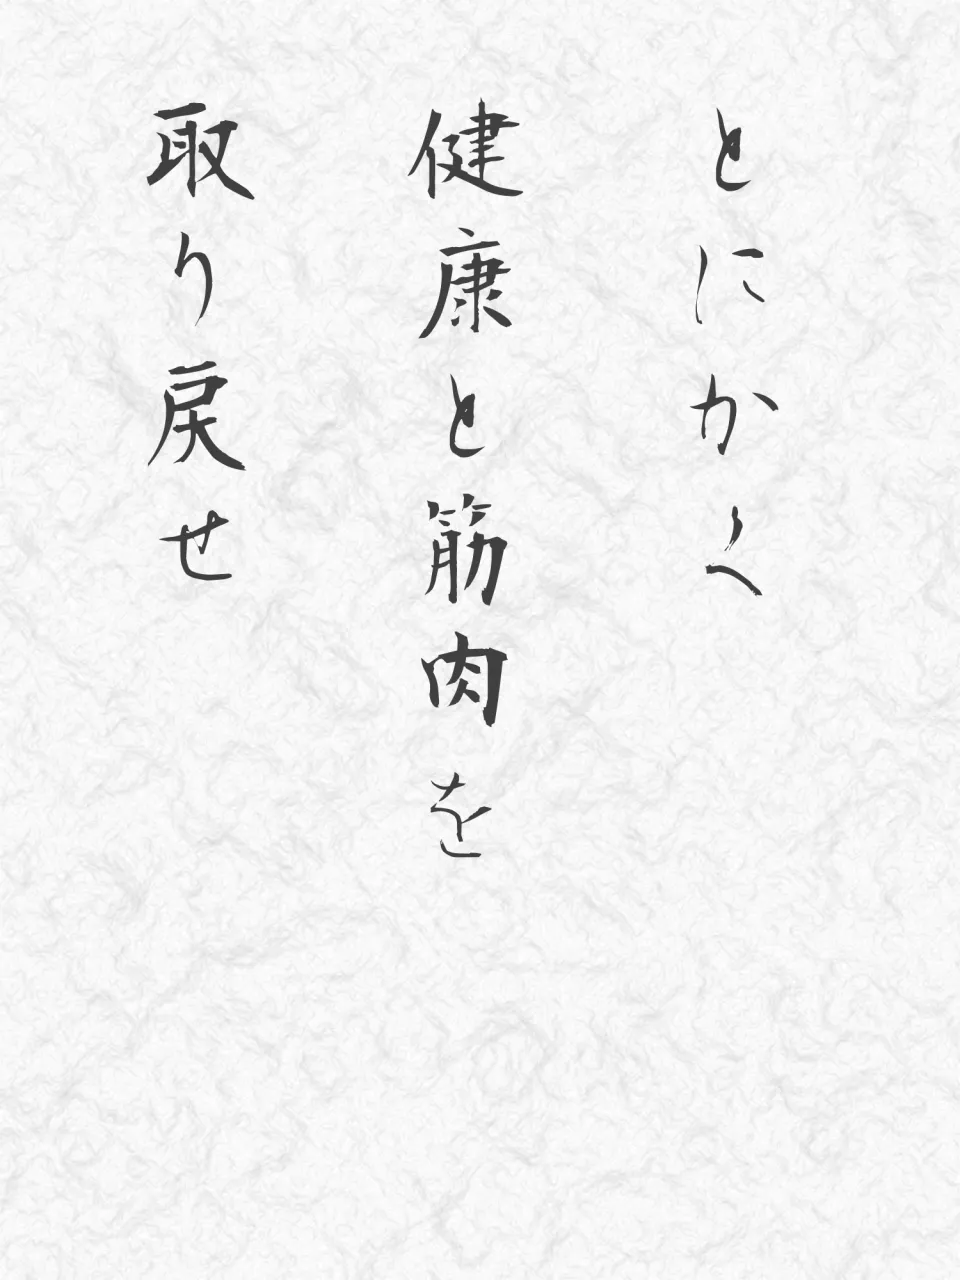 とにかく
健康と筋肉を
取り戻せ